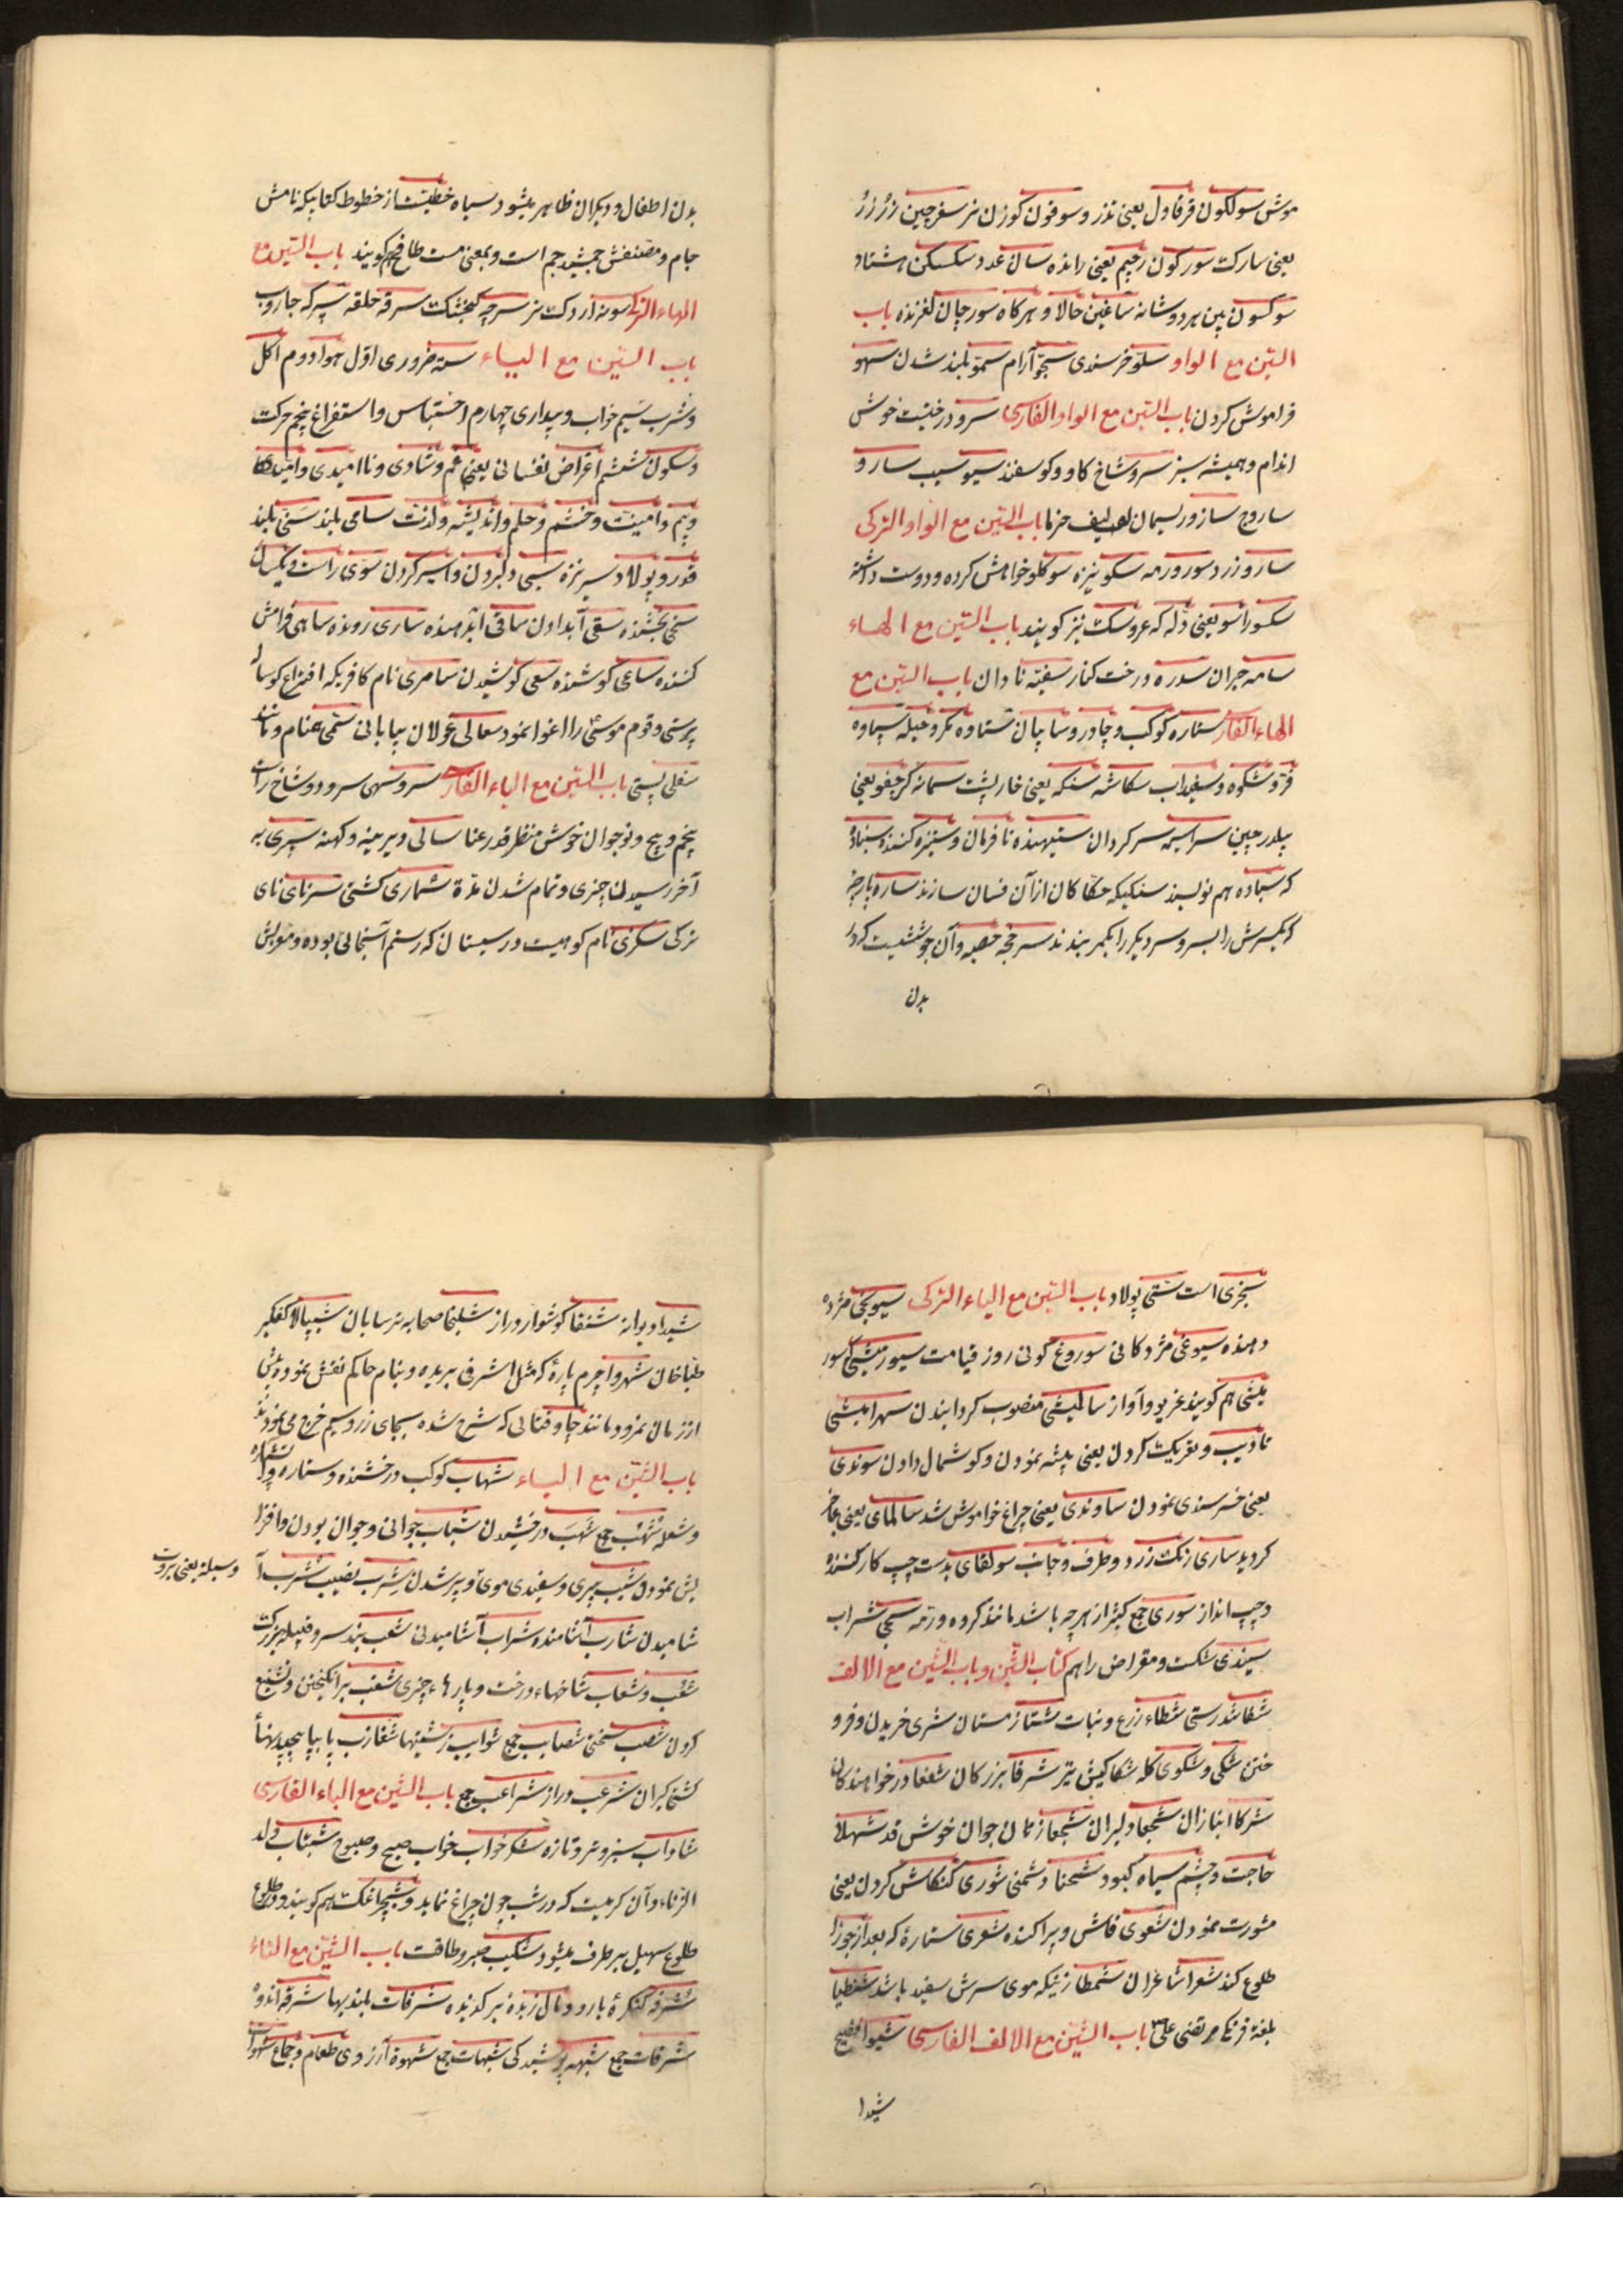 موش سولكون قرقاول یعنی تذرو سوفون كوزن نر سغرجین
یعنی سارك سوركون رجیم یعنی رانده سان عدد سكسكن هشتاد
سوكسون بین هر دو شانه ساغین حالا و هركاه سورجان لغزنده باب
السّین مع الواو سلو خرسندی سجو آرام سمو بلند شدن سهو
فراموش كردن باب السّین مع الواو الفارسی سرو درختیست خوش
اندام و همیشه سبز سرو شاخ كاو و كوسفند سیو سیب سارو
ساروج سازو ریسمان لیف خرما باب السّین مع الواو التركی
سارو زرد سورو رمه سكو نیزه سوكلو خواهش كرده و دوست داشته
یعنی دله كه عروسك نیز كویند باب السّین مع الهاء
سامه جبران سدره درخت كنار سفیه نادان باب السّین مع
الهاء الفار ستاره كوكب و چادر و سایبان مكر و حیله
فر و شكوه و سفیداب سكاشه سنكه یعنی خارپشت سمانه یعنی
بلدرچین سراسیمه سركردان ستیهنده نافرمان و ستیزه كننده سنباده
كه سباده هم نویسند سنكیكه حكاكان از آن فسان سازند ساره پارچه
كه یكسرش را بسر و سر دیكر را بكمر بندند سرخجه حصبه و آن جوششیست كه در
بدن
بدن اطفال و دیكران ظاهر میشود سیاه خطیست از خطوط كتابیكه نامش
جام و مصنفش جمشید جم است و بمعنی مست طافح هم كویند باب السّین مع
الهاء التركی سوره اردك نر سرچه كنجشك سرقه حلقه سپركه جاروب
باب السّین مع الیاء سته ضروری اوّل هوا دوم اكل
و شرب سیم خواب و بیداری چهارم احتباس و استفراغ پنجم حركت
و سكون ششم اعراض نفسانی یعنی غم و شادی و ناامیدی و امیدها
و بیم و امنیت و خشم و حلم و اندیشه و لذت سامی بلند سنی بلند
قدر و پولاد سرنیزه سبی دلبردن و اسیر كردن سوی راست و یكسان
سخی بخشنده سقی آبدادن ساقی آبدهنده ساری رونده ساهی فراموش
كننده ساعی كوشنده سعی كوشیدن سامری نام كافریكه اختراع كوساله
پرستی و قوم موسی را اغوا نمود سعالی غولان بیابانی سمی همنام و مانند
سفلی پستی باب السّین مع الیاء الفارسی سرو سهی سرو دو شاخ راست
بیخم و پیچ و نوجوان خوش منظر قدر عنا سالی دیرینه و كهنه سپری به
آخر رسیدن چیزی و تمام شدن مدّة شماری كشتی سرنای نای
تركی سكزی نام كوهیست در سیستان كه رستم آنجائی بوده و معربش
سجزی است ستی پولاد باب السّین مع الیاء التركی سیونجی مژده
دهنده سیوغی مژدكانی سوروغ كونی روز قیامت
میشی هم كویند غریو و آواز سالیشی منصوب كردانیدن
تادیب و تعریك كردن یعنی پیشه نمودن و كوشمال دادن سوندی
یعنی خرسندی نمودن ساوندی یعنی چراغ خواموش شد سالمای یعنی عاجز
كردید ساری رنك زرد و طرف و جانب سولقای بدست چپ كار كننده
و چپ انداز سوری جمع كثیر از هر چه باشد مانند كروه و رمه سجی شراب
سیندی شكست و مقراض را هم كتاب الشّین و باب الشّین مع الالف
شفا تندرستی شطاء زرع و نبات شتا زمستان شری خریدن و فرو
ختن شكی و شكوی كله شكا كیش تیر شرفا بزركان شفعا درخواهندكان
شركا انبازان شجعا دلیران شجعا زنان جوان خوش قد شهلا
حاجت و چشم سیاه كبود شحنا دشمنی شوری كنكاش كردن یعنی
مشورت نمودن شعوی فاش و پراكنده شعری ستارهٔ كه بعد از جوزا
طلوع كند شعرا شاعران شمطا زنیكه موی سرش سفید باشد شنطیا
بلغة فرنكی مرتضی علی باب الشّین مع الالف الفارسی شیوا فصیح
شیدا
شیدا دیوانه شنفا كوشوار دراز شلیخا صحابه ترسایان شبپالا كفكیر
طباخان شهروا چرم پارهٔ كه مثل اشرفی بریده و بنام حاكم نقش نموده پیش
از زمان نمرود مانند كه شرح شده بجای زر و سیم خرج می نمودند
باب الشّین مع الباء شهاب كوكب درخشنده و ستاره
و شعله شهب جمع شهب درخشیدن شباب جوانی و جوان بودن و افزا
یش نمودن شیب پیری و سفیدی موی و پیر شدن شرب نصیب شرب آ
شامیدن شارب آشامنده شراب آشامیدنی شعب بند سر و قبیله بزرك
وسبلة یعنی بروت
شعب و شعاب شاخهاء درخت و پارهاء چیزی شغب برانكیختن و تشنیع
كردن شصب سختی شصایب جمع شوایب زشتیها شغازب پا بپا پیچیدنها
كشتی كیران شرعب دراز شراعب جمع باب الشّین مع الباء الفارسی
شاداب سبز و تر و تازه شكر خواب خواب صبح و صبوح شبتاب ولد
الزناء و آن كرمیست كه در شب چون چراغ نماید و شبچراغك هم كویند و در طلوع
طلوع سهیل برطرف میشود شكیب صبر و طاقت باب الشّین مع التاء
شرفه كنكرهٔ بارو و مال زبده برگزیده شرفات بلندیها
شرفات جمع شبهه پوشیدكی شبهات جمع شهوة آرزوی طعام و جماع شهوات